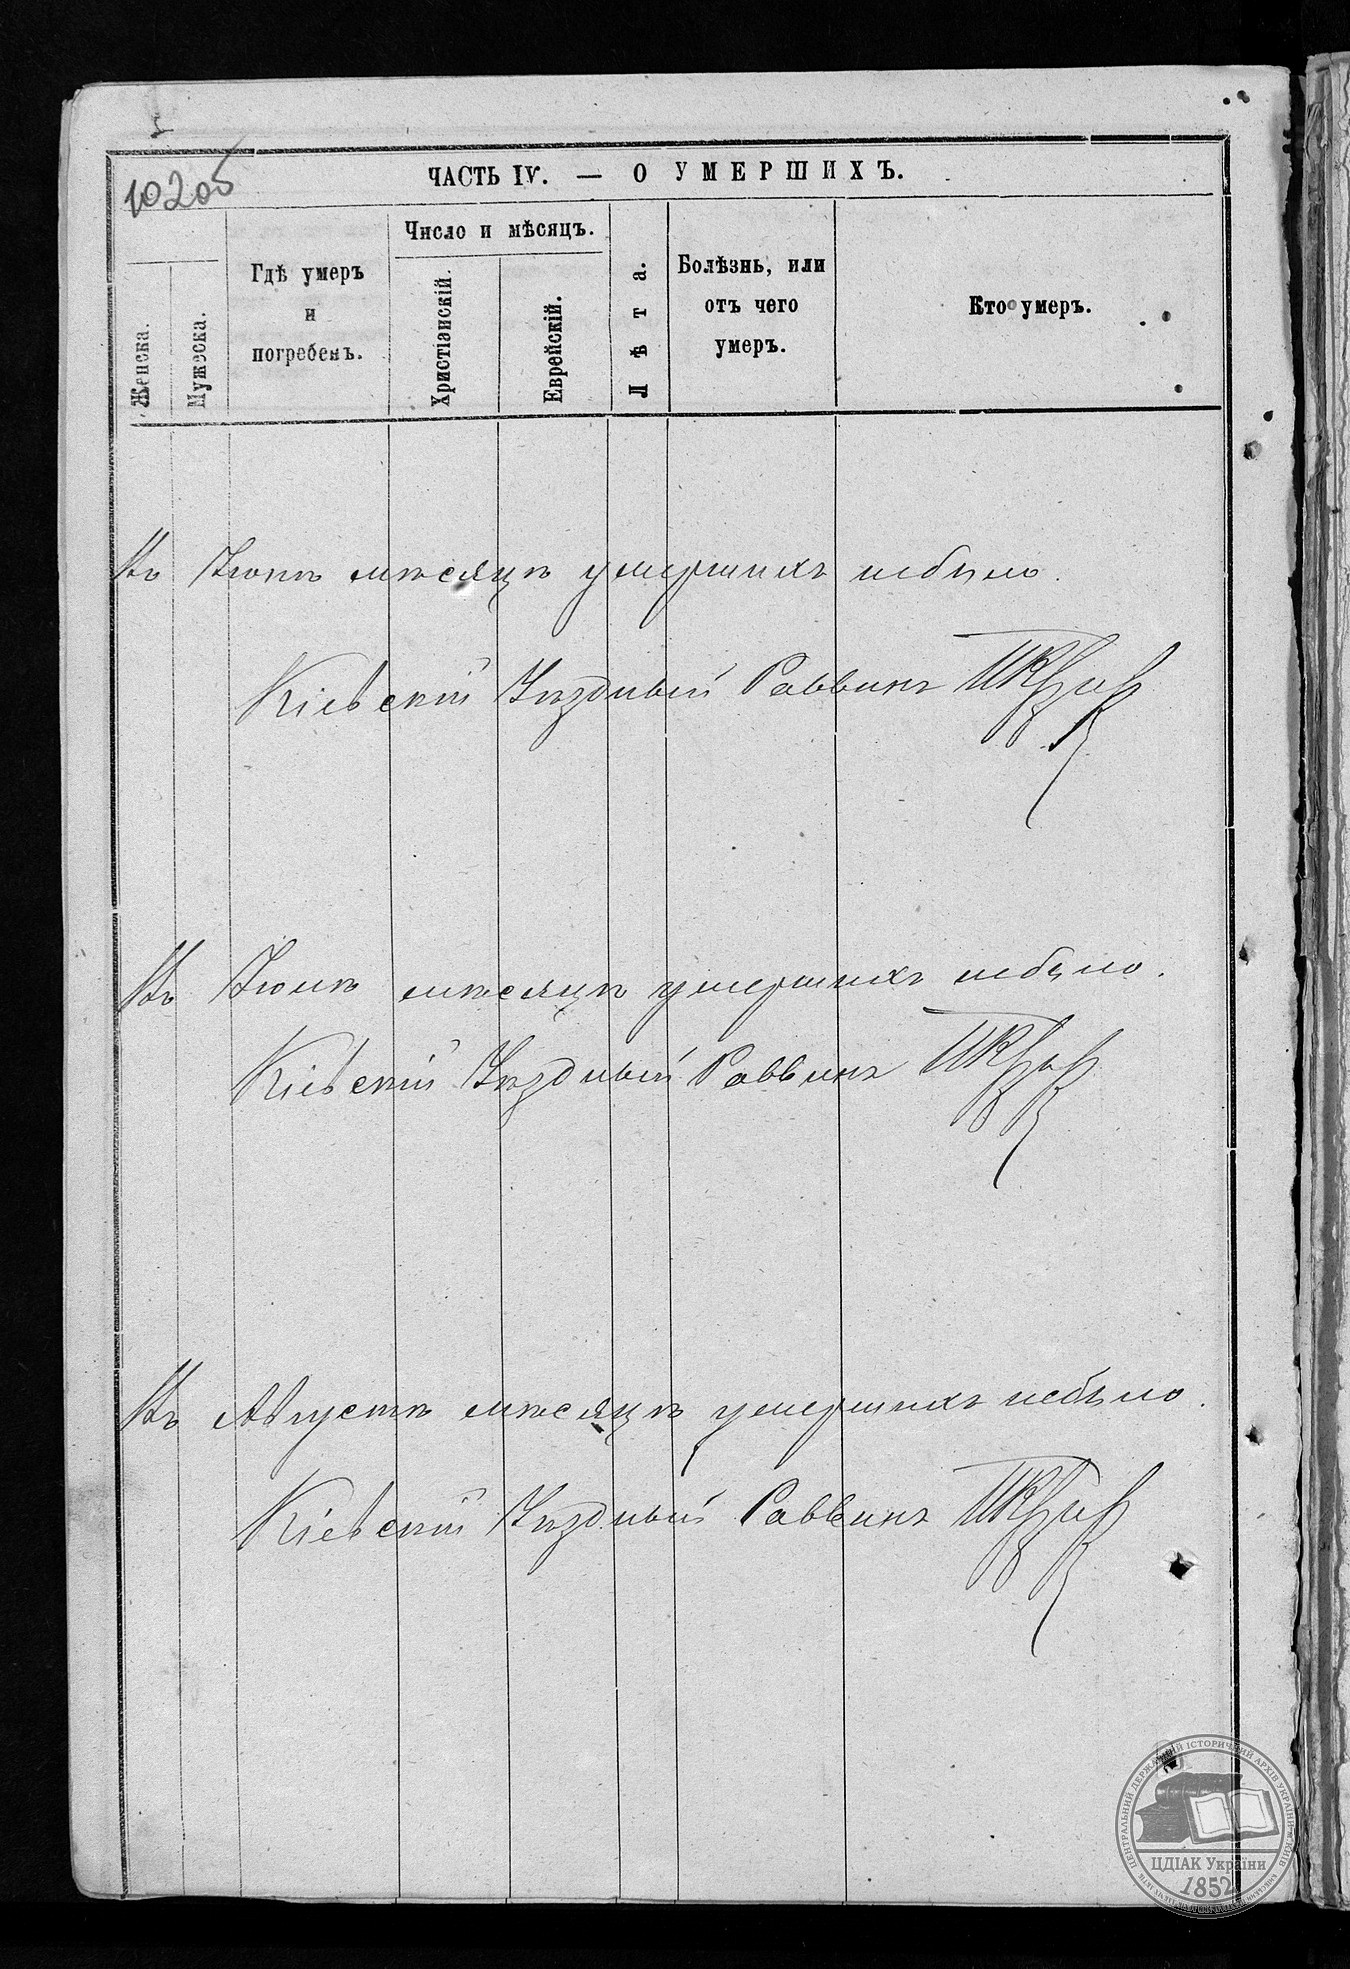 10205
ЧАСТЬ IV. — О УМЕРШИХЪ.
Женска.
Мужеска.
Гдѣ умеръ
и
погребенъ.
Число и мѣсяцъ.
Христіанскій.
Еврейскій.
Лѣта.
Болѣзнь, или
отъ чего
умеръ.
Кто умеръ.
Въ Іюнѣ мѣсяцѣ умершихъ небыло.
Кіевскій Уѣздный Раввинъ
Въ Іюлѣ мѣсяцѣ умершихъ небыло.
Кіевскій Уѣздный Раввинъ
Въ Августѣ мѣсяцѣ умершихъ небыло.
Кіевскій Уѣздный Раввинъ
ЦЕНТРАЛЬНИЙ ДЕРЖАВНИЙ ІСТОРИЧНИЙ АРХІВ УКРАЇНИ
ЦДІАК України
1852